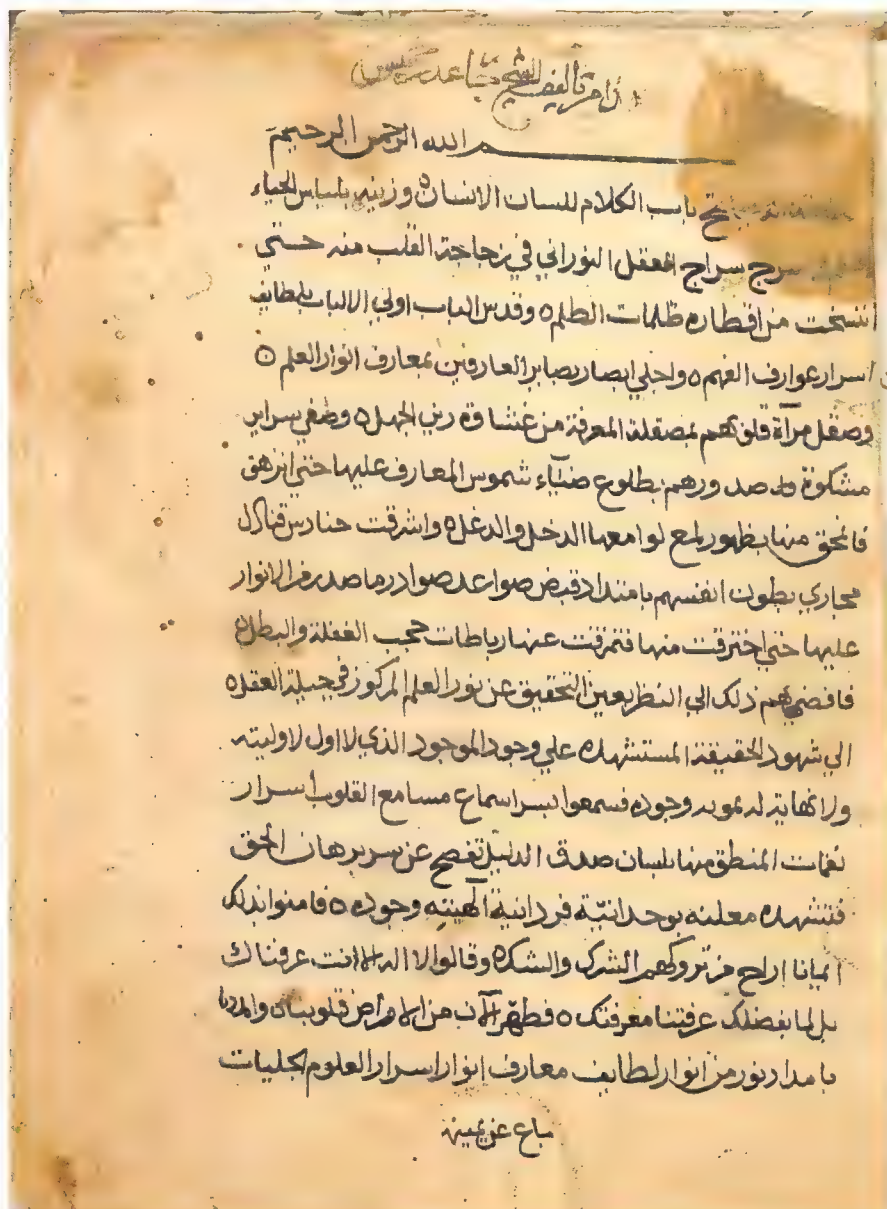 الله الرحمن الرحيم
باب الكلام للسان الانسان وزينه بلباس الحياء
سرج سراج العقل النوراني في زجاجة القلب منه حتي
انتسخت من اقطاره ظلمات الظلم ه وقدس الباب اولي الالباب بلطايف
اسرار عوارف الفهم ه واجلي ابصار بصاير العارفين بمعارف انوار العلم ه
وصقل مرآة قلوبهم بمصقلة المعرفة من غشاوة رين الجهل ه وصفي سراير
مشكوة صدورهم بطلوع ضيآء شموس المعارف عليها حتي انزهق
فانمحق منها بظهور لمع لوامعها الدخل والدغل ه واشرقت حنادس
مجاري بطون انفسهم بامتداد صوادر ما صدر من الانوار
عليها حتي اخترقت منها فتمزقت عنها رباطات حجب الغفلة والبطل ه
فافضي بهم ذلك الي النظر بعين التحقيق عن نور العلم المركوز في جبلة العقل ه
الي شهود الحقيقة المستشهده علي وجود الموجود الذي لا اول لاوليته
ولا نهاية له وجوده فسمعوا بسر اسماع مسامع القلوب اسرار
نغمات المنطق منها بلسان صدق الدليل تفصح عن سر برهان الحق
فتشهده معلنه بوحدانيّة فردانية آلهيته وجوده ه فامنوا بذلك
ايمانا الشرك والشك ه وقالوا لا اله الا انت عرفناك
بل لما بفضلك عرفتنا معرفتك ه فطهر الآن من الامراض قلوبنا ه وامددنا
بامداد نور من انوار لطايف معارف انوار اسرار العلوم الجليات